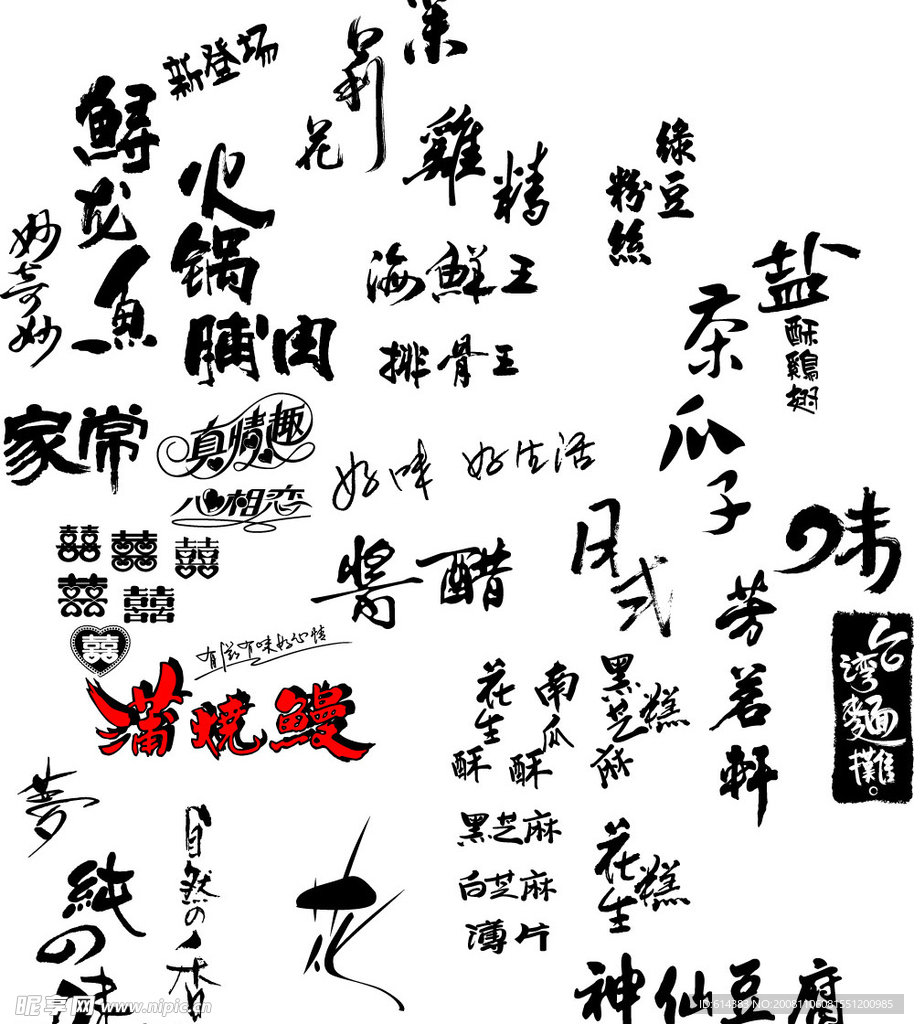 新登场
莉花
鲟龙鱼
火锅
脯肉
雞精
綠豆
粉絲
妙奇妙
海鮮王
排骨王
盐
酥鷄翅
茶瓜子
家常
真情趣
心相恋
好味 好生活
囍 囍 囍
囍 囍
囍
醬醋
日式
味
芳茗軒
台湾麵攤。
有滋有味好心情
蒲燒鰻
花生酥
南瓜酥
黑芝麻糕
黑芝麻
白芝麻
薄片
花生糕
夢
純の味
自然の
花
神仙豆腐
昵享网 www.nipic.cn
ID:614383 NO:20081106081551200985